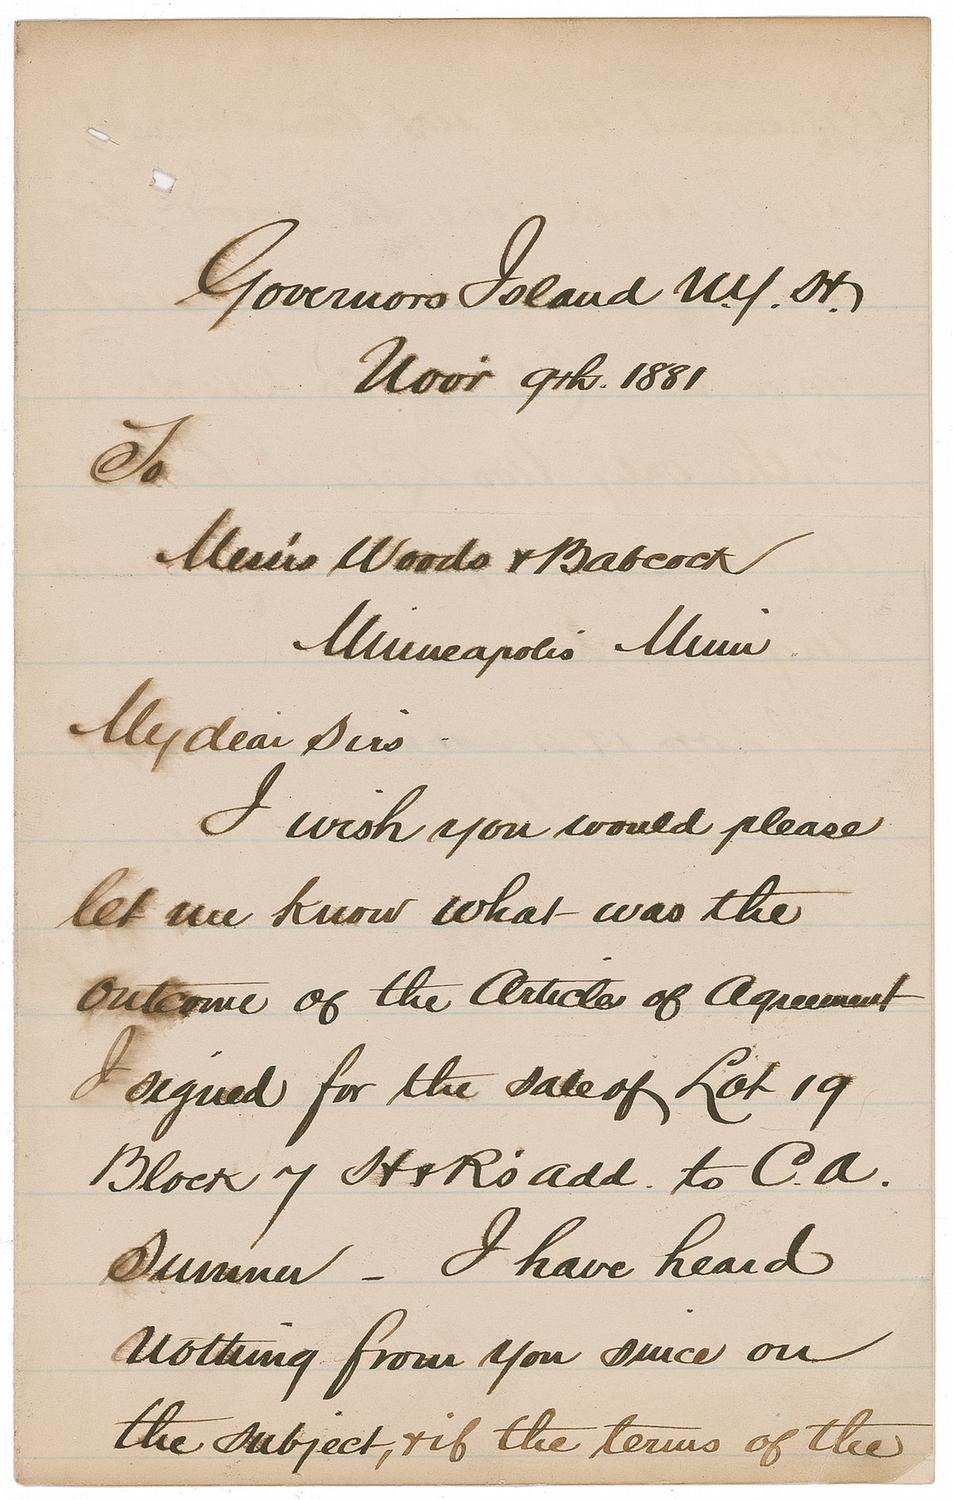 Governors Island N.Y. H.
Nov'r 9th. 1881
To
Mess'rs Woods & Babcock
Minneapolis Minn
My dear Sirs
I wish you would please
let me know what was the
outcome of the Articles of Agreement
I signed for the sale of Lot 19
Block 7 H & R's add. to C. A.
Sumner _ I have heard
nothing from you since on
the subject, & if the terms of the